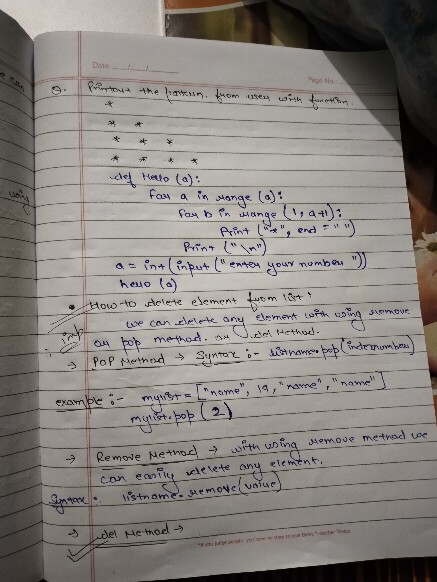 Date / /
Page No.
Q. Printout the pattern. from user with function.
*
* *
* * *
* * * *
def Hello (a):
for a in range (a):
for b in range (1, a+1):
Print ("*", end = " ")
Print ("\n")
a = int(input("enter your number"))
hello (a)
• How to delete element from list'
we can delete any element with using remove
or pop method. or del Method.
imp
→ PoP Method → Syntax :- listname.pop(indexnumber)
example :- mylist = ["name", 19, "name", "name"]
mylist.pop (2)
→ Remove Method → with using remove method we
can easily delete any element.
Syntax • listname.remove(value)
→ del Method →